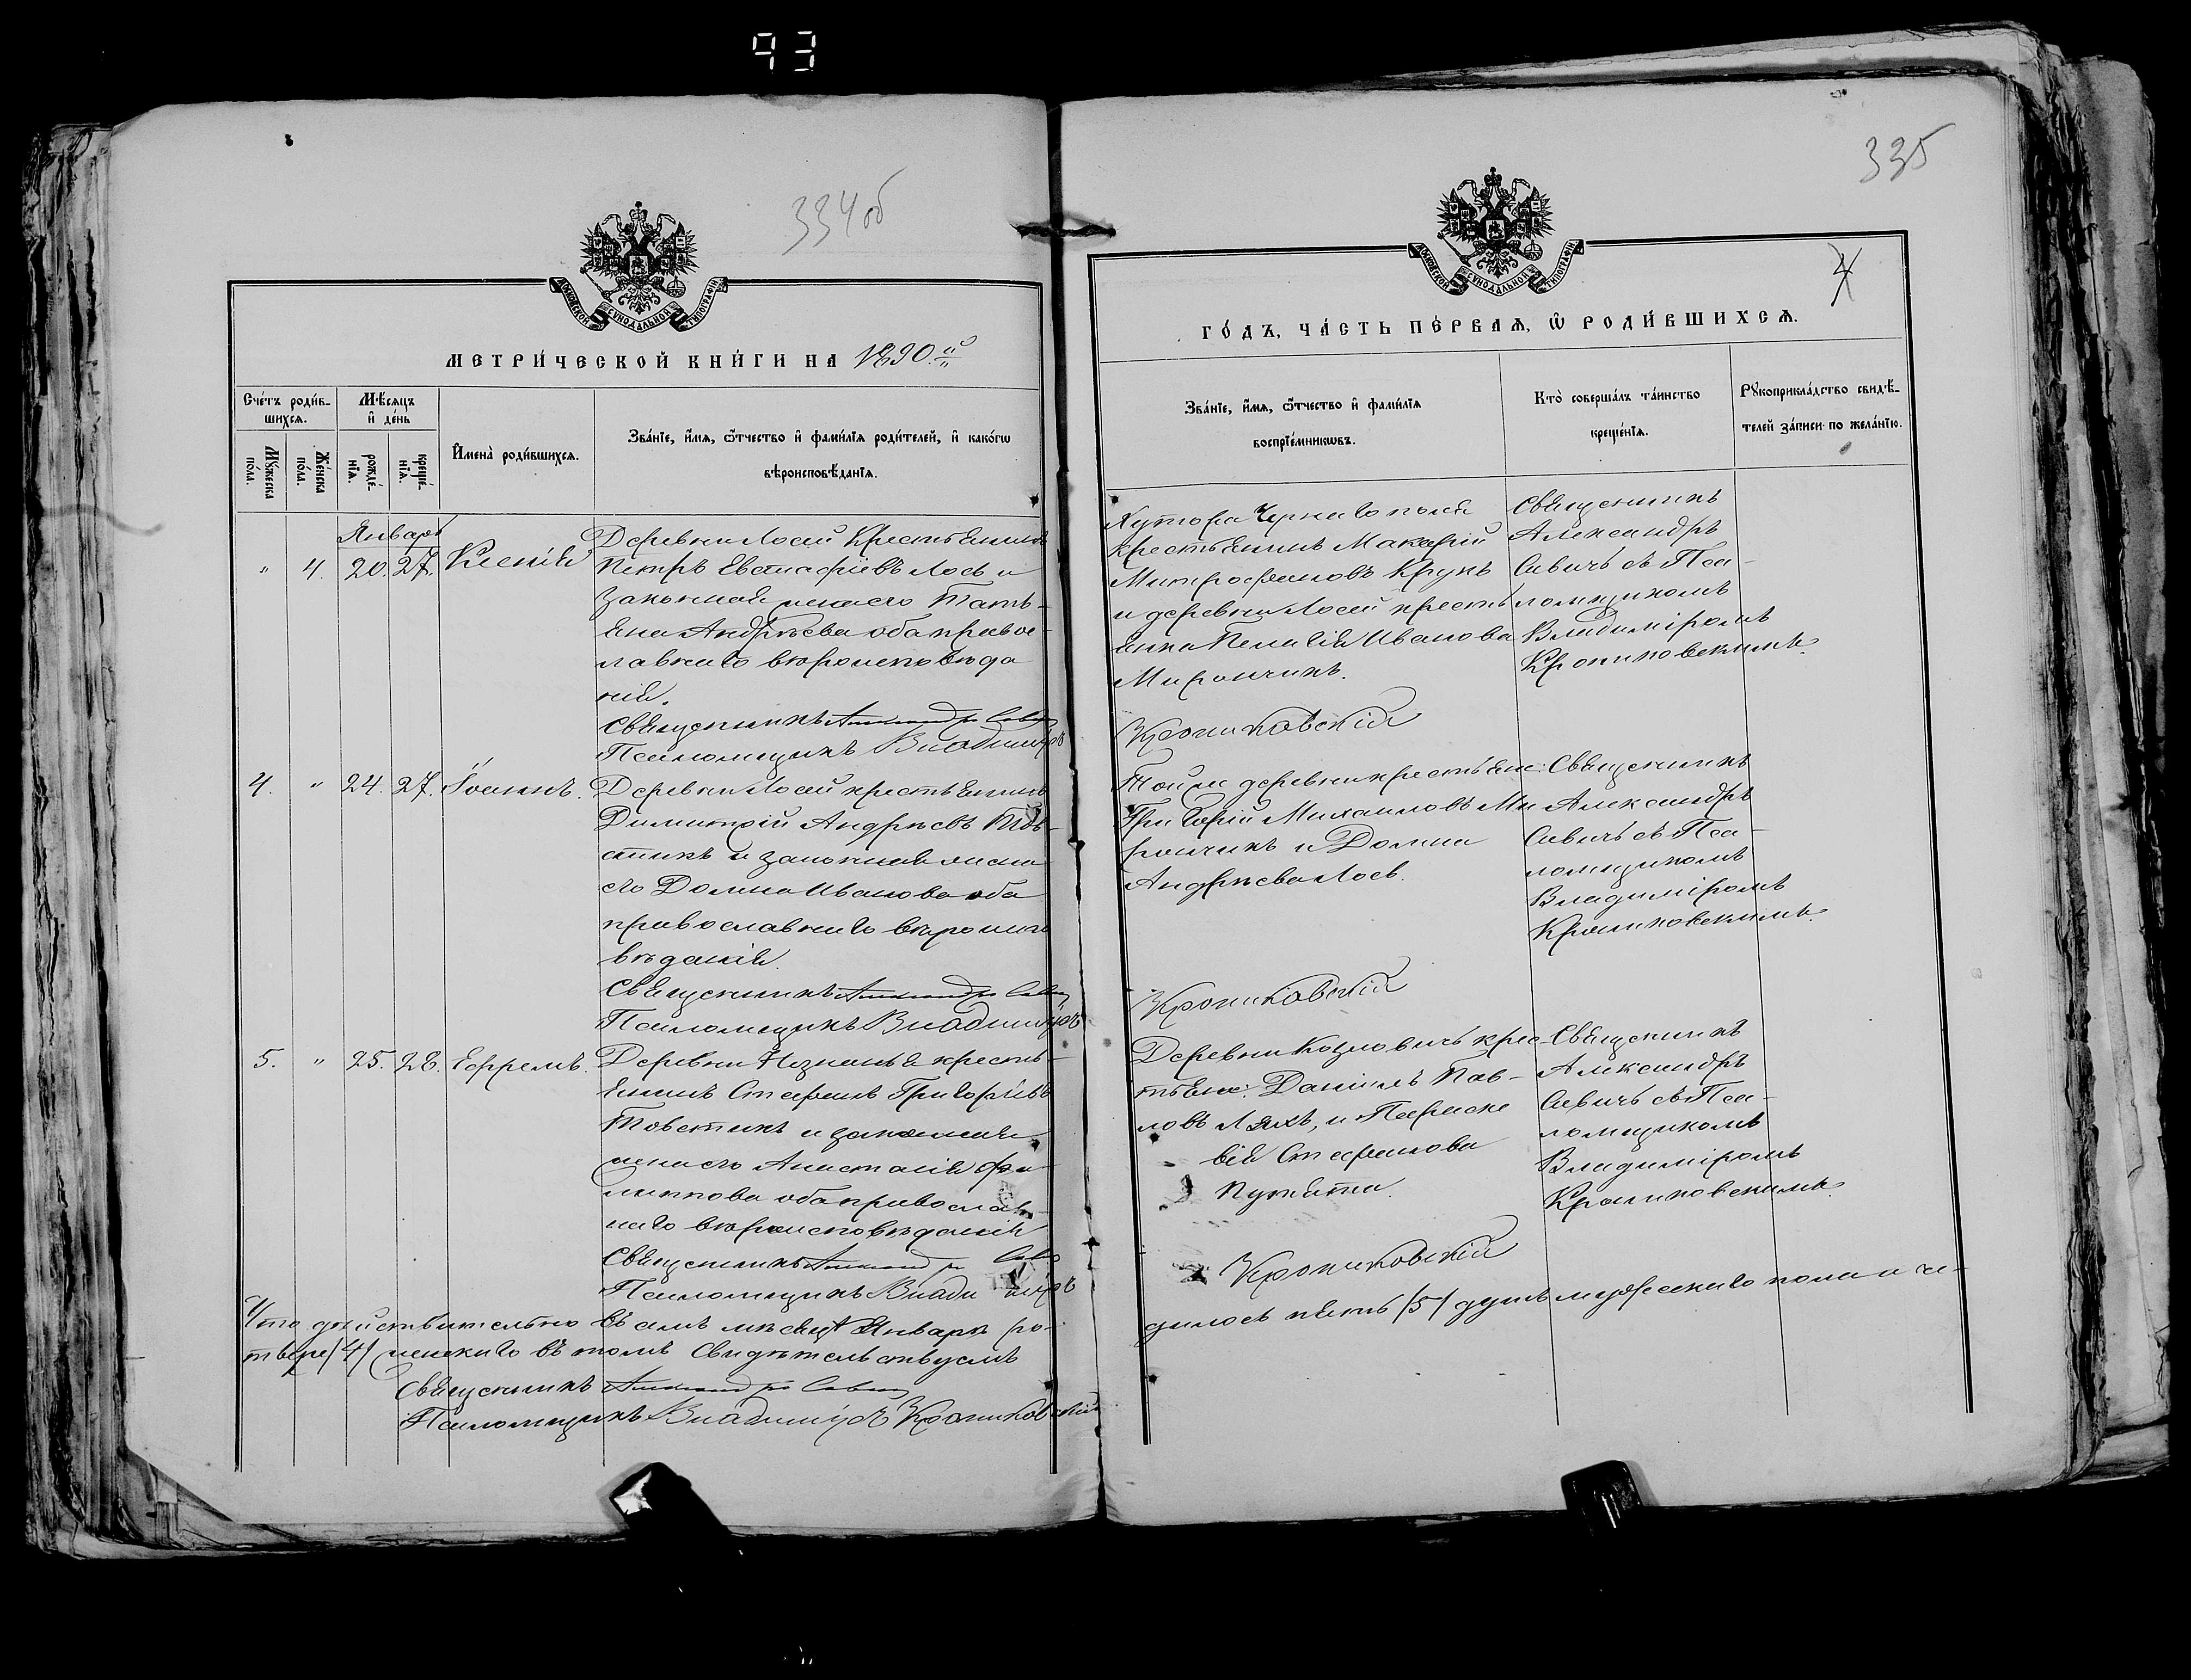 93
334 об
МЕТРИ́ЧЕСКОЙ КНИ́ГИ НА 1890.й
Сче́тъ роди́в-
шихсѧ.
Мѣ́сѧцъ
и҆ де́нь
Мꙋ́жеска
по́ла.
Же́нска
по́ла.
рожде́-
нїѧ.
креще́-
нїѧ.
И҆мена̀ роди́вшихсѧ.
Зва́нїе, и҆́мѧ, ѻ҆́тчество и҆ фамн́лїѧ роди́телей, и҆ како́гѡ
вѣроисповѣ́данїѧ.
Январь
" 4. 20. 27. Ксенія
Деревни Лосей Крестьянинъ
Петръ Евстафіевъ Лось и
законная жена его Тать-
яна Андрѣева оба право-
славнаго вѣроисповѣда
нія.
Священникъ Александръ Савичъ
Псаломщикъ Владиміръ
4. " 24. 27. Іоаннъ.
Деревни Лосей крестьянинъ
Димитрій Андрѣевъ Тов-
стикъ и законная жена
его Домна Иванова оба
православнаго вѣроиспо
вѣданія.
Священникъ Александръ Савичъ
Псаломщикъ Владиміръ
5. " 25. 28. Ефремъ.
Деревни Незнанья кресть-
янинъ Стефанъ Григоріевъ
Товстикъ и законная
жена его Анастасія Фи-
липпова оба православ-
наго вѣроисповѣданія
Священникъ Александръ Сав
Псаломщикъ Владиміръ
Что действительно въ семъ мѣсяцѣ Январѣ ро-
твере /4/ женскаго въ томъ Свидѣтельствуемъ
Священникъ Александръ Савичъ
Псаломщикъ Владиміръ Крониковскій
335
4
ГО́ДЪ, ЧА́СТЬ ПЕ́РВАѦ, Ѡ҆ РОДИ́ВШИХСѦ.
Зва́нїе, и҆́мѧ, ѻ҆́тчество и҆ фами́лїѧ
воспрїе́мникѡвъ.
Кто̀ соверша́лъ та́инство
креще́нїѧ.
Рꙋкоприкла́дство свидѣ́-
телей за́писи по жела́нїю.
Хутора Чернаго поля
крестьянинъ Макарій
Митрофановъ Крукъ
и деревни Лосей кресть
янка Пелагія Иванова
Мирончикъ.
Священникъ
Александръ
Савичъ съ Пса-
ломщикомъ
Владиміромъ
Крониковскимъ.
Крониковскій
Той же деревни крестьяне:
Григорій Михаиловъ Ми
рончикъ и Домна
Андрѣева Лось.
Священникъ
Александръ
Савичъ съ Пса-
ломщикомъ
Владиміромъ
Крониковскимъ.
Крониковскій
Деревни Козловичъ крес-
тьяне: Даніилъ Пав-
ловъ Ляхъ, и Параске
вія Стефанова
Пужята.
Священникъ
Александръ
Савичъ съ Пса-
ломщикомъ
Владиміромъ
Крониковскимъ.
Крониковскій
дилось пять /5/ душъ мужескаго пола и че-